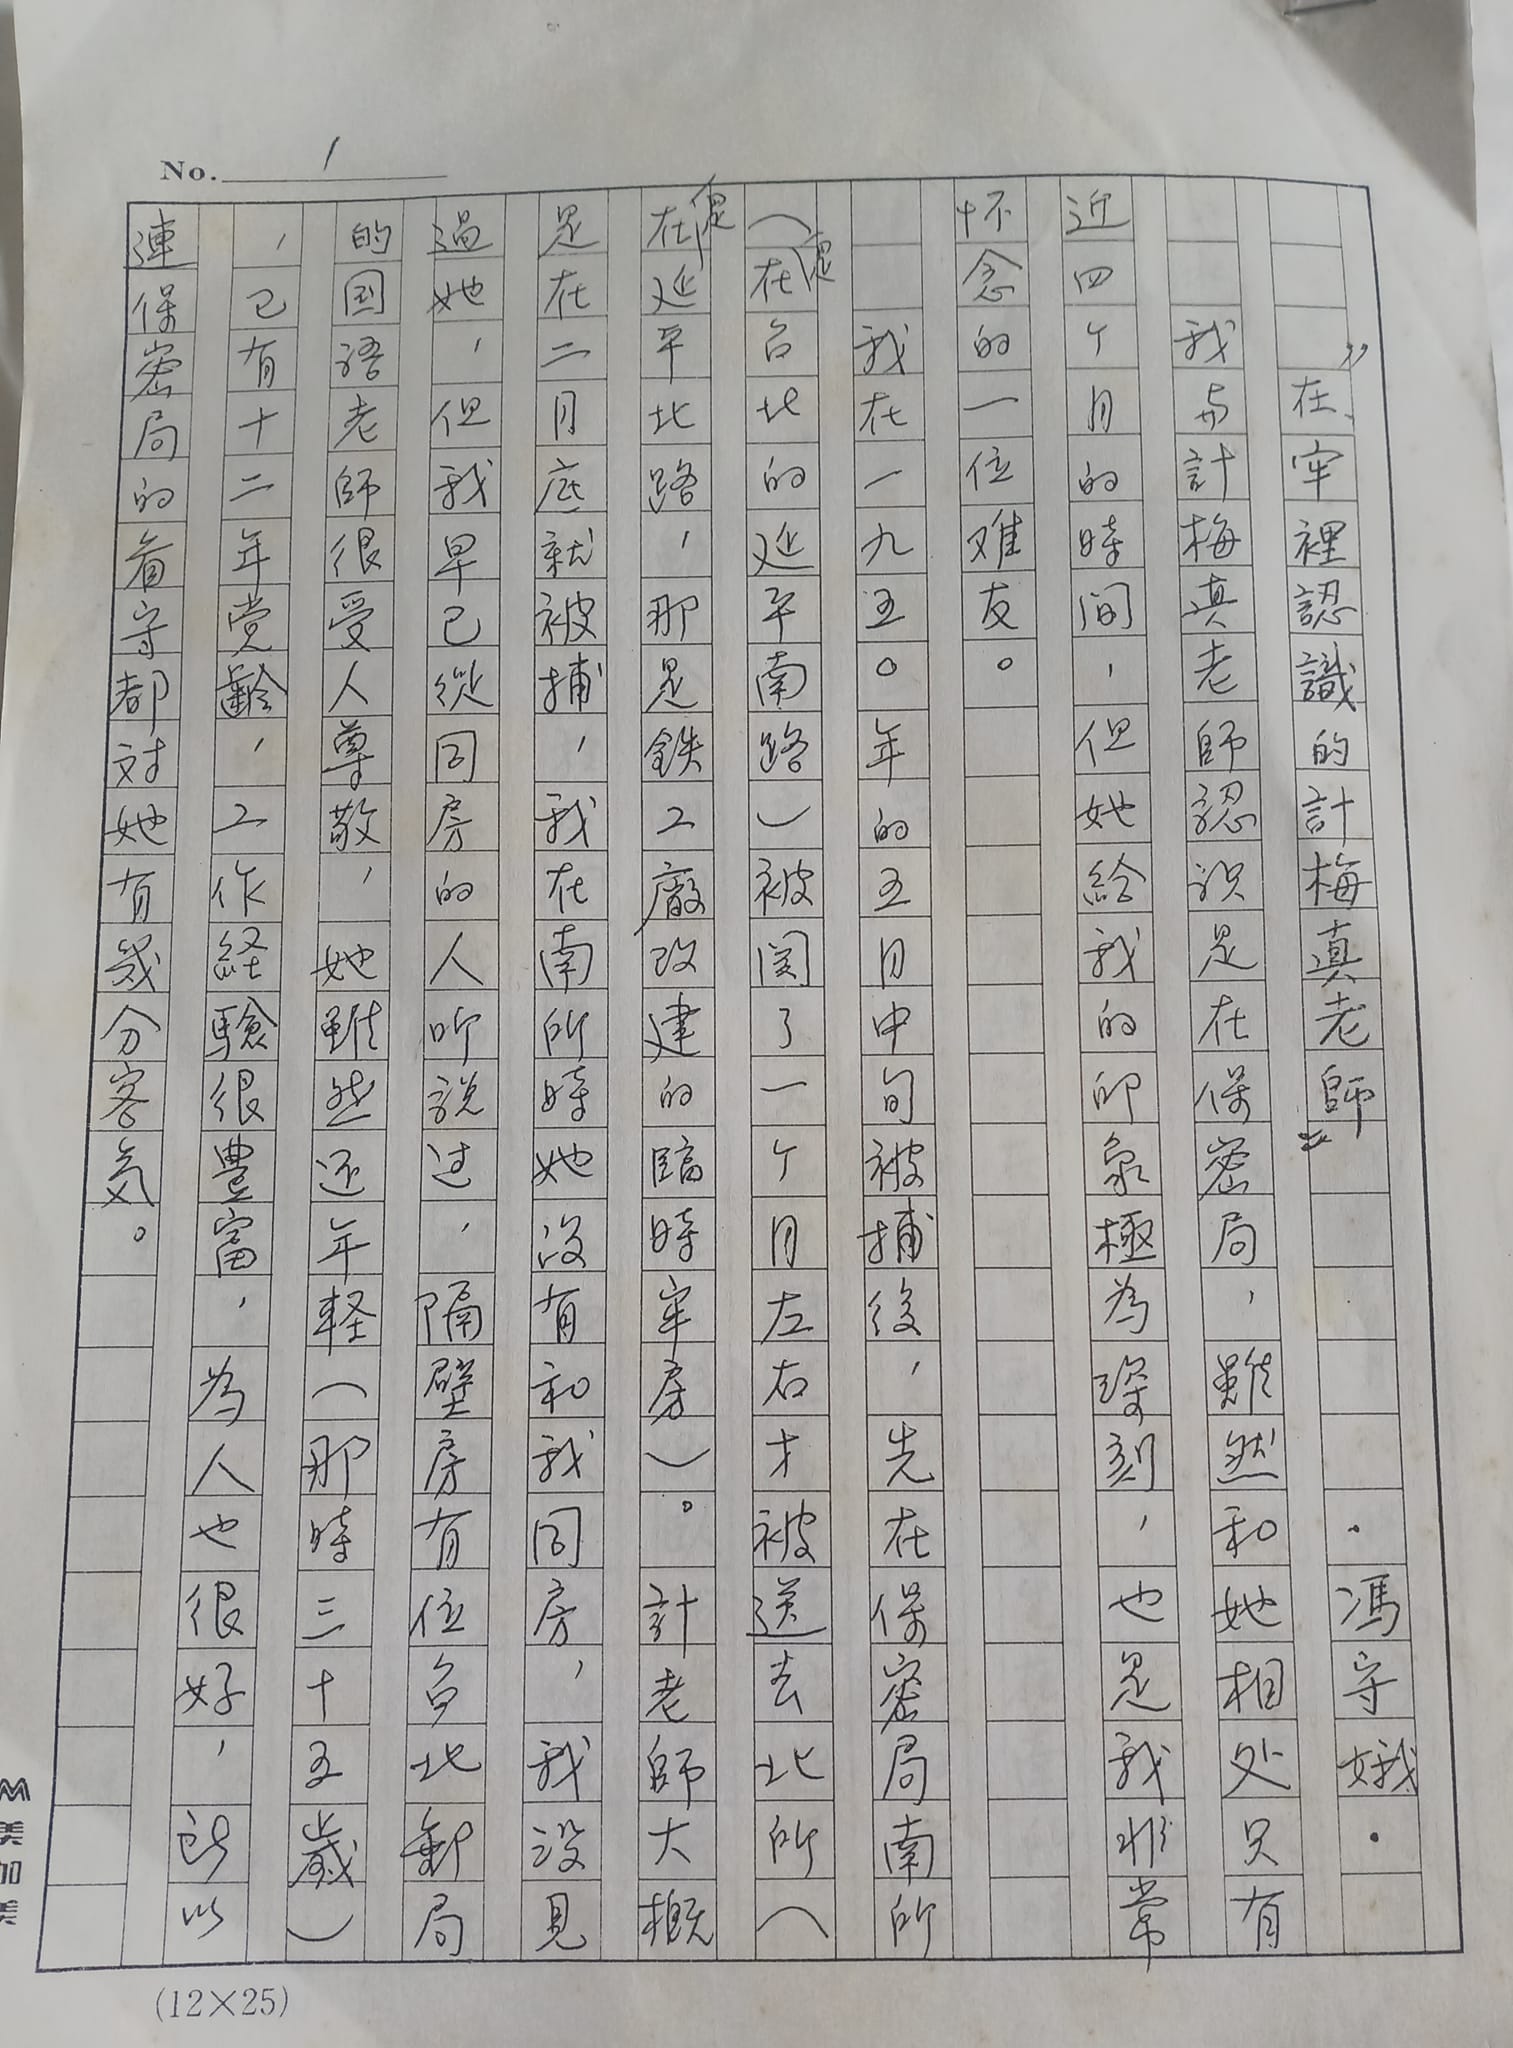 No. 1
"在牢裡認識的計梅真老師" ·馮守娥·
我与計梅真老師認识是在保密局，雖然和她相处只有
近四个月的時间，但她給我的印象極為深刻，也是我非常
怀念的一位难友。
我在一九五〇年的五月中旬被捕後，先在保密局南所
（是在台北的延平南路）被関了一个月左右才被送去北所（
是在延平北路，那是鉄工廠改建的臨時牢房）。計老師大概
是在二月底就被捕，我在南所時她没有和我同房，我没見
過她，但我早已從同房的人听説过，隔壁房有位台北郵局
的国語老師很受人尊敬，她雖然还年軽（那時三十五歲）
，已有十二年党齡，工作経驗很豊富，為人也很好，所以
連保密局的看守都对她有幾分客気。
(12×25)
美加美